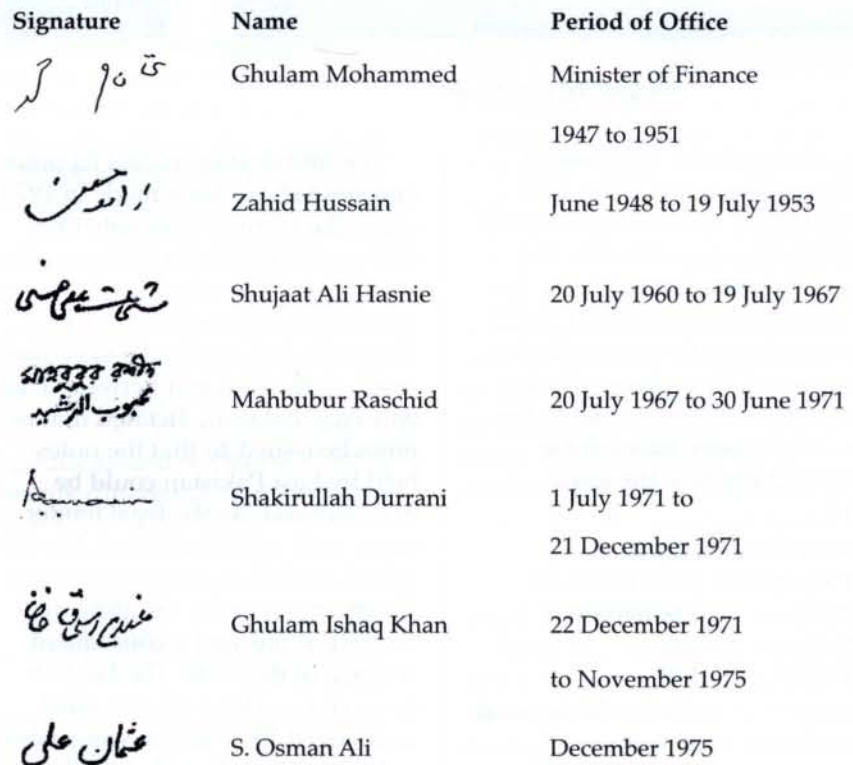 Signature Name Period of Office
Ghulam Mohammed Minister of Finance
1947 to 1951
Zahid Hussain June 1948 to 19 July 1953
Shujaat Ali Hasnie 20 July 1960 to 19 July 1967
মাহবুবুর রশীদ
محبوب الرشید Mahbubur Raschid 20 July 1967 to 30 June 1971
Shakirullah Durrani 1 July 1971 to
21 December 1971
Ghulam Ishaq Khan 22 December 1971
to November 1975
عثمان علی S. Osman Ali December 1975